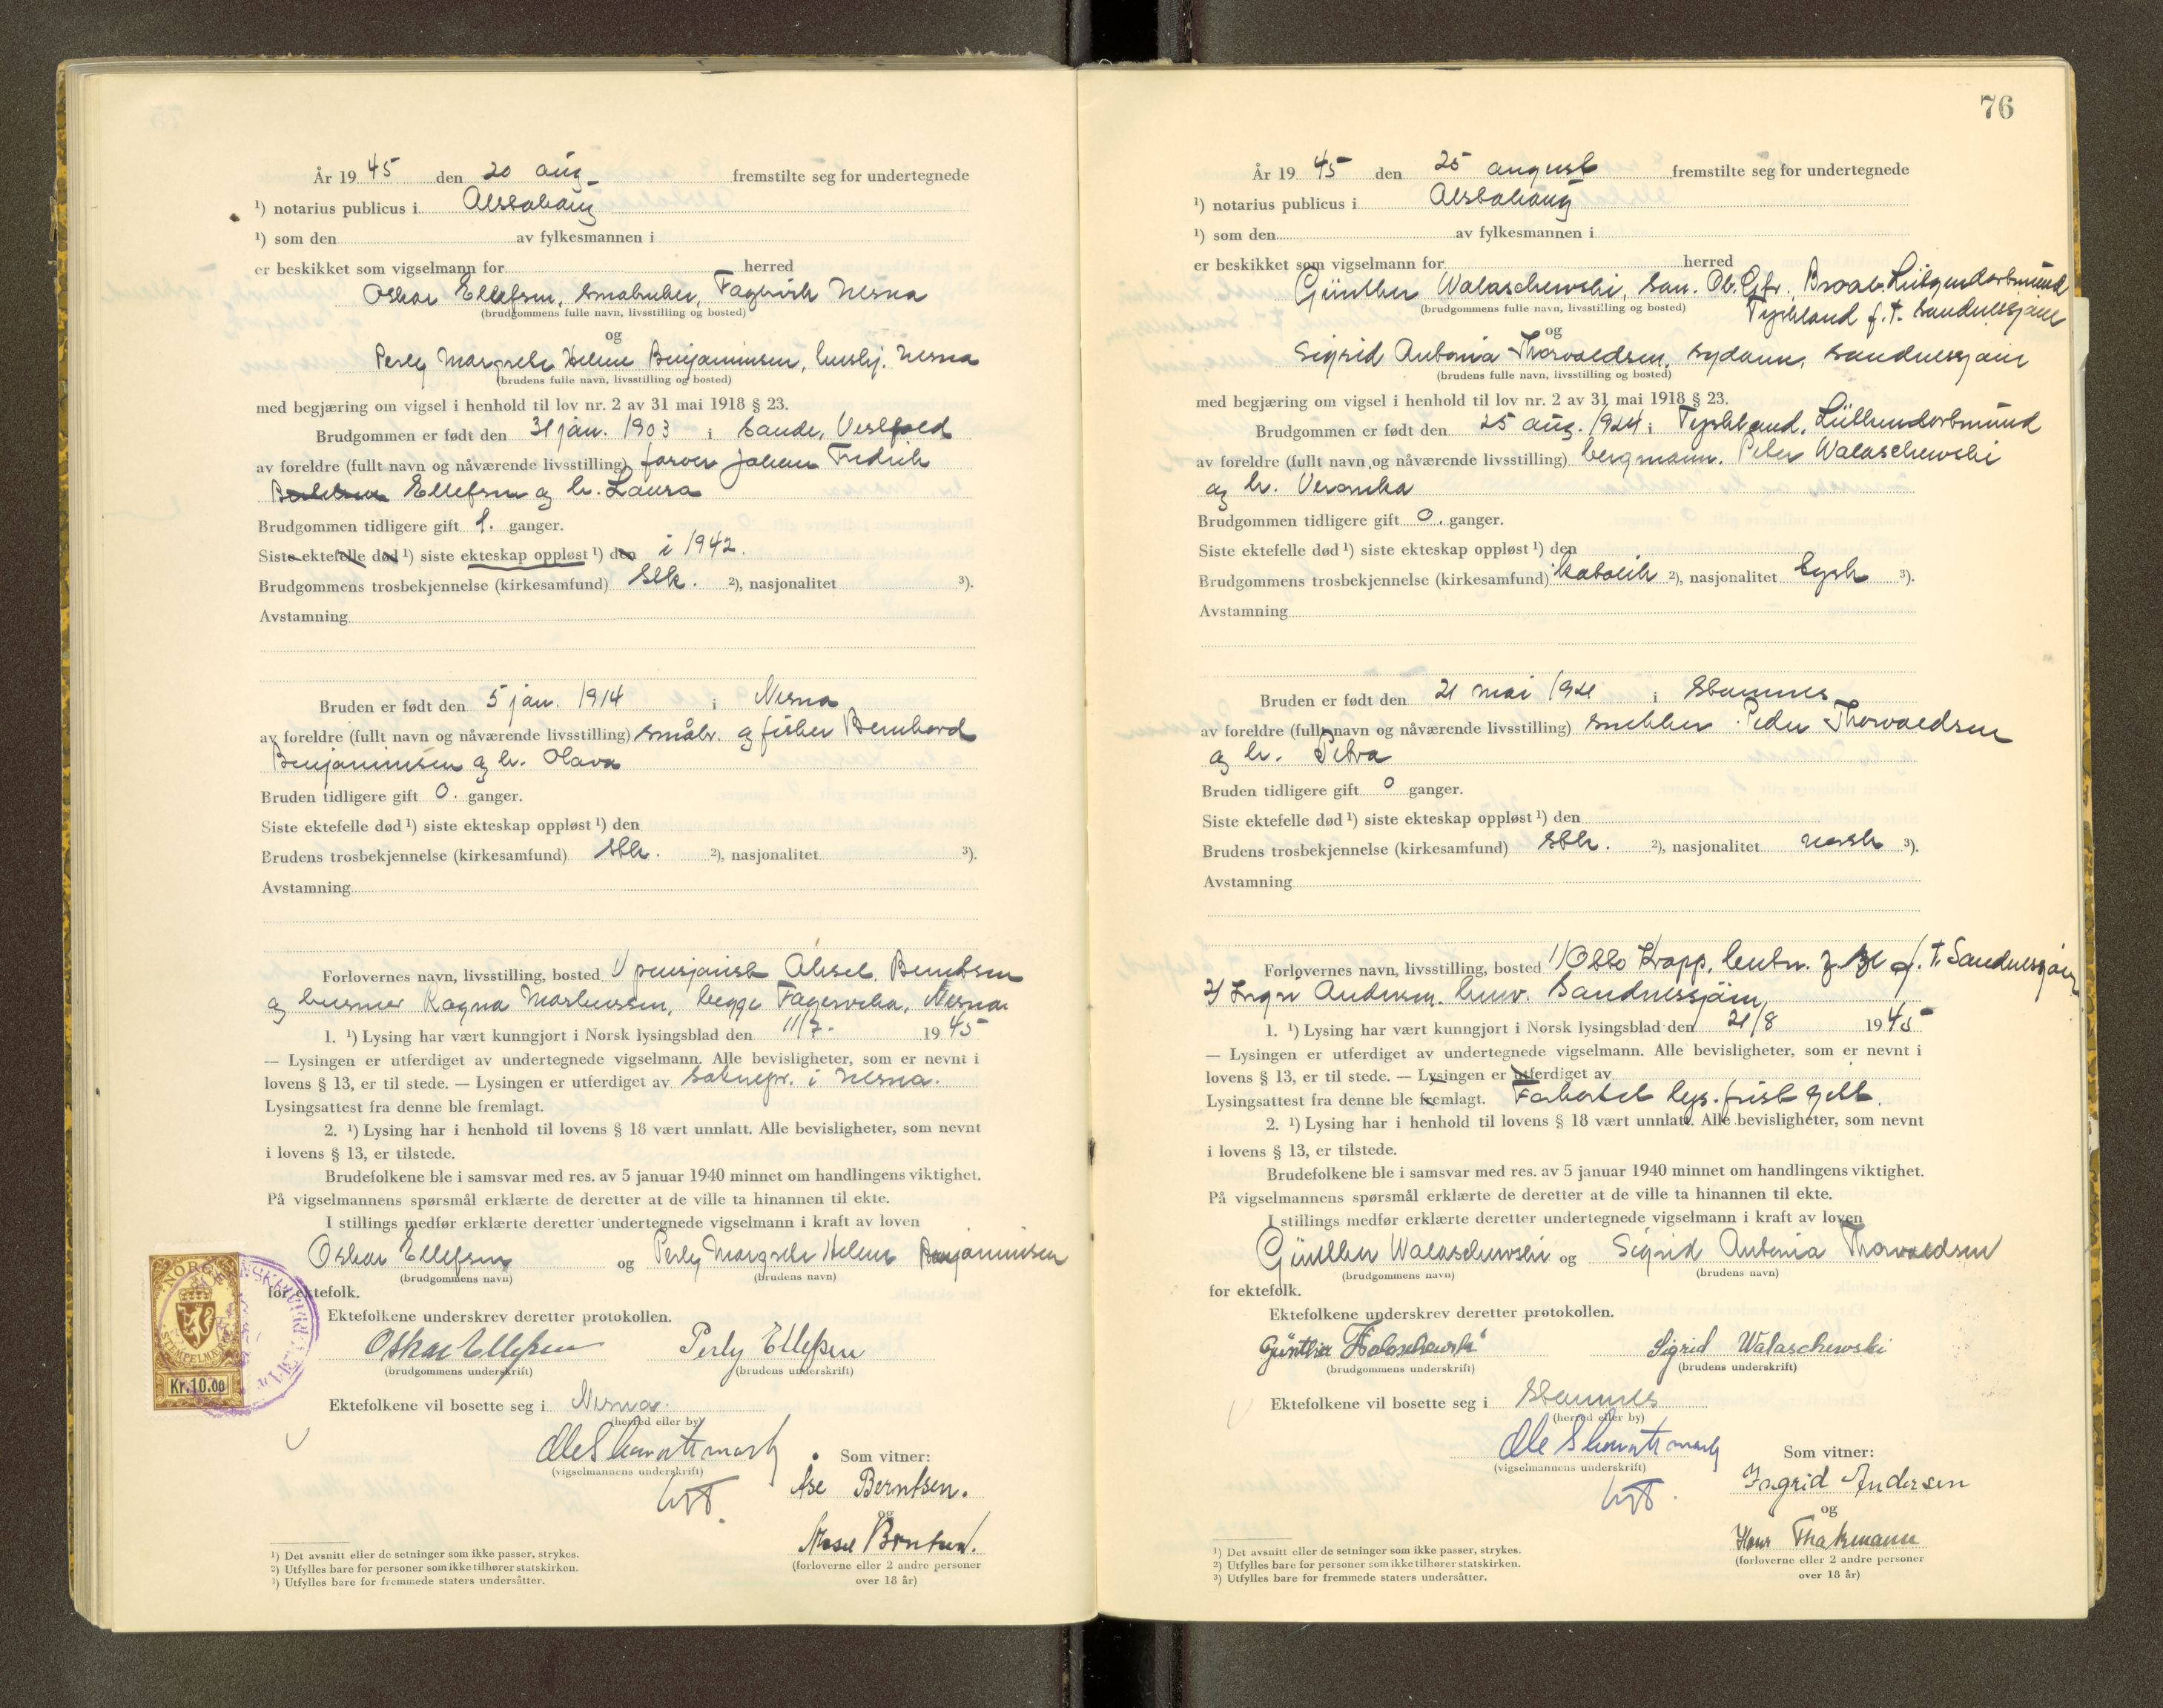 År 19 45 den 20 aug. fremstilte seg for undertegnede
¹) notarius publicus i Alstahaug
¹) som den av fylkesmannen i
er beskikket som vigselmann for herred
Oskar Ellefsen, småbruker, Fagervik Nesna
(brudgommens fulle navn, livsstilling og bosted)
og
Perly Margrete Helene Benjaminsen, hushj. Nesna
(brudens fulle navn, livsstilling og bosted)
med begjæring om vigsel i henhold til lov nr. 2 av 31 mai 1918 § 23.
Brudgommen er født den 31 jan. 1903 i Sande, Vestfold
av foreldre (fullt navn og nåværende livsstilling) farver Johan Fredrik
Ellefsen og h. Laura
Brudgommen tidligere gift 1. ganger.
Siste ektefelle død ¹) siste ekteskap oppløst ¹) den i 1942.
Brudgommens trosbekjennelse (kirkesamfund) stk. ²), nasjonalitet ³).
Avstamning
Bruden er født den 5 jan. 1914 i Nesna
av foreldre (fullt navn og nåværende livsstilling) småbr. og fisker Bernhard
Benjaminsen og h. Olava
Bruden tidligere gift 0. ganger.
Siste ektefelle død ¹) siste ekteskap oppløst ¹) den
Brudens trosbekjennelse (kirkesamfund) stk. ²), nasjonalitet ³).
Avstamning
Forlovernes navn, livsstilling, bosted 1/ pensjonist Aksel Berntsen
og husmor Ragna Markussen, begge Fagervika, Nesna
1. ¹) Lysing har vært kunngjort i Norsk lysingsblad den 11/7. 19 45
— Lysingen er utferdiget av undertegnede vigselmann. Alle bevisligheter, som er nevnt i
lovens § 13, er til stede. — Lysingen er utferdiget av soknepr. i Nesna.
Lysingsattest fra denne ble fremlagt.
2. ¹) Lysing har i henhold til lovens § 18 vært unnlatt. Alle bevisligheter, som nevnt
i lovens § 13, er tilstede.
Brudefolkene ble i samsvar med res. av 5 januar 1940 minnet om handlingens viktighet.
På vigselmannens spørsmål erklærte de deretter at de ville ta hinannen til ekte.
I stillings medfør erklærte deretter undertegnede vigselmann i kraft av loven
Oskar Ellefsen og Perly Margrete Helene Benjaminsen
(brudgommens navn) (brudens navn)
for ektefolk.
Ektefolkene underskrev deretter protokollen.
Oskar Ellefsen Perly Ellefsen
(brudgommens underskrift) (brudens underskrift)
NORGE
STEMPELMERKE
Kr. 10.00
Ektefolkene vil bosette seg i Nesna.
(herred eller by)
(vigselmannens underskrift)
Som vitner:
Åse Berntsen.
og
Aksel Berntsen.
(forloverne eller 2 andre personer
over 18 år)
¹) Det avsnitt eller de setninger som ikke passer, strykes.
²) Utfylles bare for personer som ikke tilhører statskirken.
³) Utfylles bare for fremmede staters undersåtter.
76
År 19 45 den 25 august fremstilte seg for undertegnede
¹) notarius publicus i Alstahaug
¹) som den av fylkesmannen i
er beskikket som vigselmann for herred
Günther Walaschewski, San. Ob. Gfr. Lütgendortmund
Tyskland f.t. Sandnessjøen
(brudgommens fulle navn, livsstilling og bosted)
og
Sigrid Antonia Thorvaldsen, sydame, Sandnessjøen
(brudens fulle navn, livsstilling og bosted)
med begjæring om vigsel i henhold til lov nr. 2 av 31 mai 1918 § 23.
Brudgommen er født den 25 aug. 1924 i Tyskland, Lüttendortmund
av foreldre (fullt navn og nåværende livsstilling) bergmann. Peter Walaschewski
og h. Veronika
Brudgommen tidligere gift 0. ganger.
Siste ektefelle død ¹) siste ekteskap oppløst ¹) den
Brudgommens trosbekjennelse (kirkesamfund) katolik ²), nasjonalitet tysk ³).
Avstamning
Bruden er født den 21 mai 1921 i Stamnes
av foreldre (fullt navn og nåværende livsstilling) snekker Peder Thorvaldsen
og h. Petra
Bruden tidligere gift 0 ganger.
Siste ektefelle død ¹) siste ekteskap oppløst ¹) den
Brudens trosbekjennelse (kirkesamfund) stk. ²), nasjonalitet norsk ³).
Avstamning
Forlovernes navn, livsstilling, bosted 1/ Otto Krapp, leutn. f. t. Sandnessjøen
2/ Andersen. Sandnessjøen,
1. ¹) Lysing har vært kunngjort i Norsk lysingsblad den 21/8 19 45
— Lysingen er utferdiget av undertegnede vigselmann. Alle bevisligheter, som er nevnt i
lovens § 13, er til stede. — Lysingen er utferdiget av
Lysingsattest fra denne ble fremlagt. Forkortet lys.frist gitt.
2. ¹) Lysing har i henhold til lovens § 18 vært unnlatt. Alle bevisligheter, som nevnt
i lovens § 13, er tilstede.
Brudefolkene ble i samsvar med res. av 5 januar 1940 minnet om handlingens viktighet.
På vigselmannens spørsmål erklærte de deretter at de ville ta hinannen til ekte.
I stillings medfør erklærte deretter undertegnede vigselmann i kraft av loven
Günther Walaschewski og Sigrid Antonia Thorvaldsen
(brudgommens navn) (brudens navn)
for ektefolk.
Ektefolkene underskrev deretter protokollen.
Günther Walaschewski Sigrid Walaschewski
(brudgommens underskrift) (brudens underskrift)
Ektefolkene vil bosette seg i Stamnes
(herred eller by)
(vigselmannens underskrift)
Som vitner:
Ingrid Andersen
og
(forloverne eller 2 andre personer
over 18 år)
¹) Det avsnitt eller de setninger som ikke passer, strykes.
²) Utfylles bare for personer som ikke tilhører statskirken.
³) Utfylles bare for fremmede staters undersåtter.